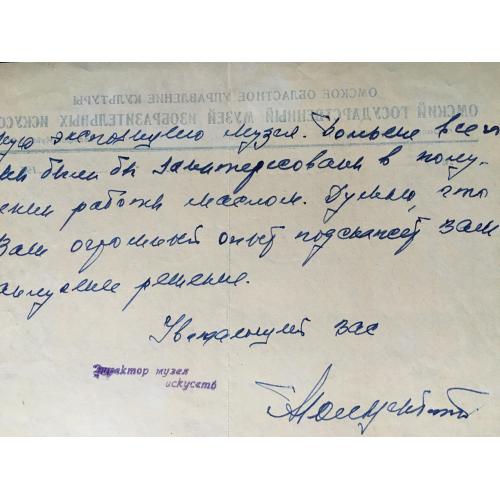 ОМСКОЕ ОБЛАСТНОЕ УПРАВЛЕНИЕ КУЛЬТУРЫ
ОМСКИЙ ГОСУДАРСТВЕННЫЙ МУЗЕЙ ИЗОБРАЗИТЕЛЬНЫХ ИСКУССТ
экспозицию музея. Больше всего
мы были бы заинтересованы в полу-
чении работы маслом. Думаю, что
Ваш огромный опыт подскажет Вам
наилучшее решение.
Уважающий Вас
Директор музея
искусств